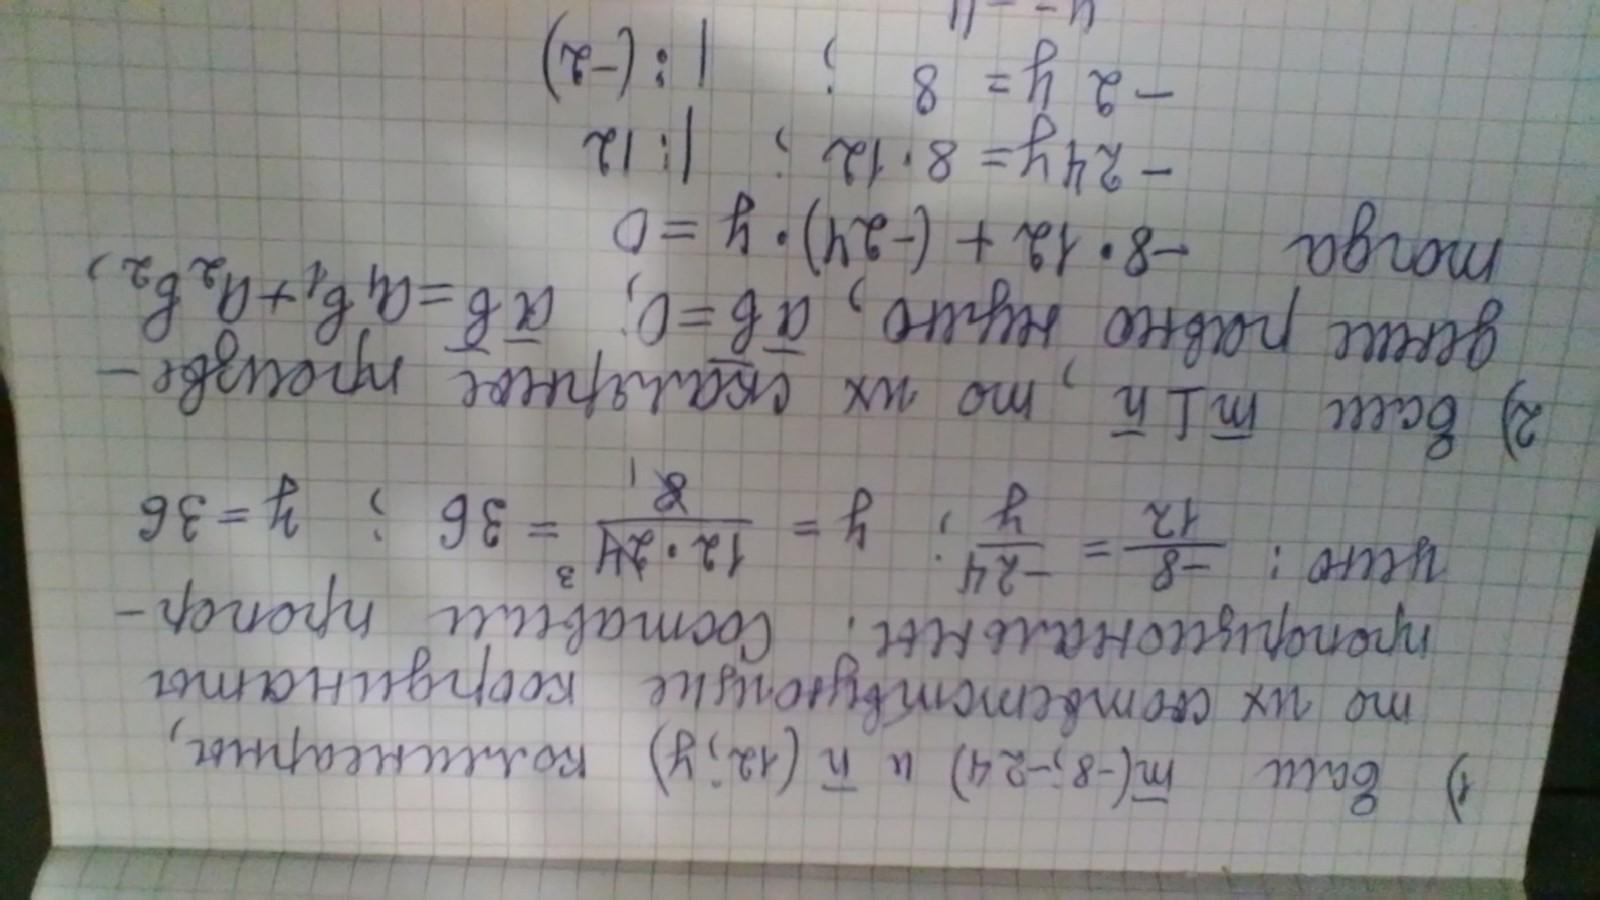 1) Если m̅(-8;-24) и n̅(12;y) колинеарны,
то их соответствующие координаты
пропорциональны. Составим пропор-
цию: -8/12 = -24/y; y = 12·24/8 = 36; y = 36
2) Если m̅⊥n̅, то их скалярное произве-
дение равно нулю, a̅b̅=0; a̅b̅=a₁b₁+a₂b₂,
тогда -8·12+(-24)·y=0
-24y=8·12; |:12
-2y=8; |:(-2)
y=-4